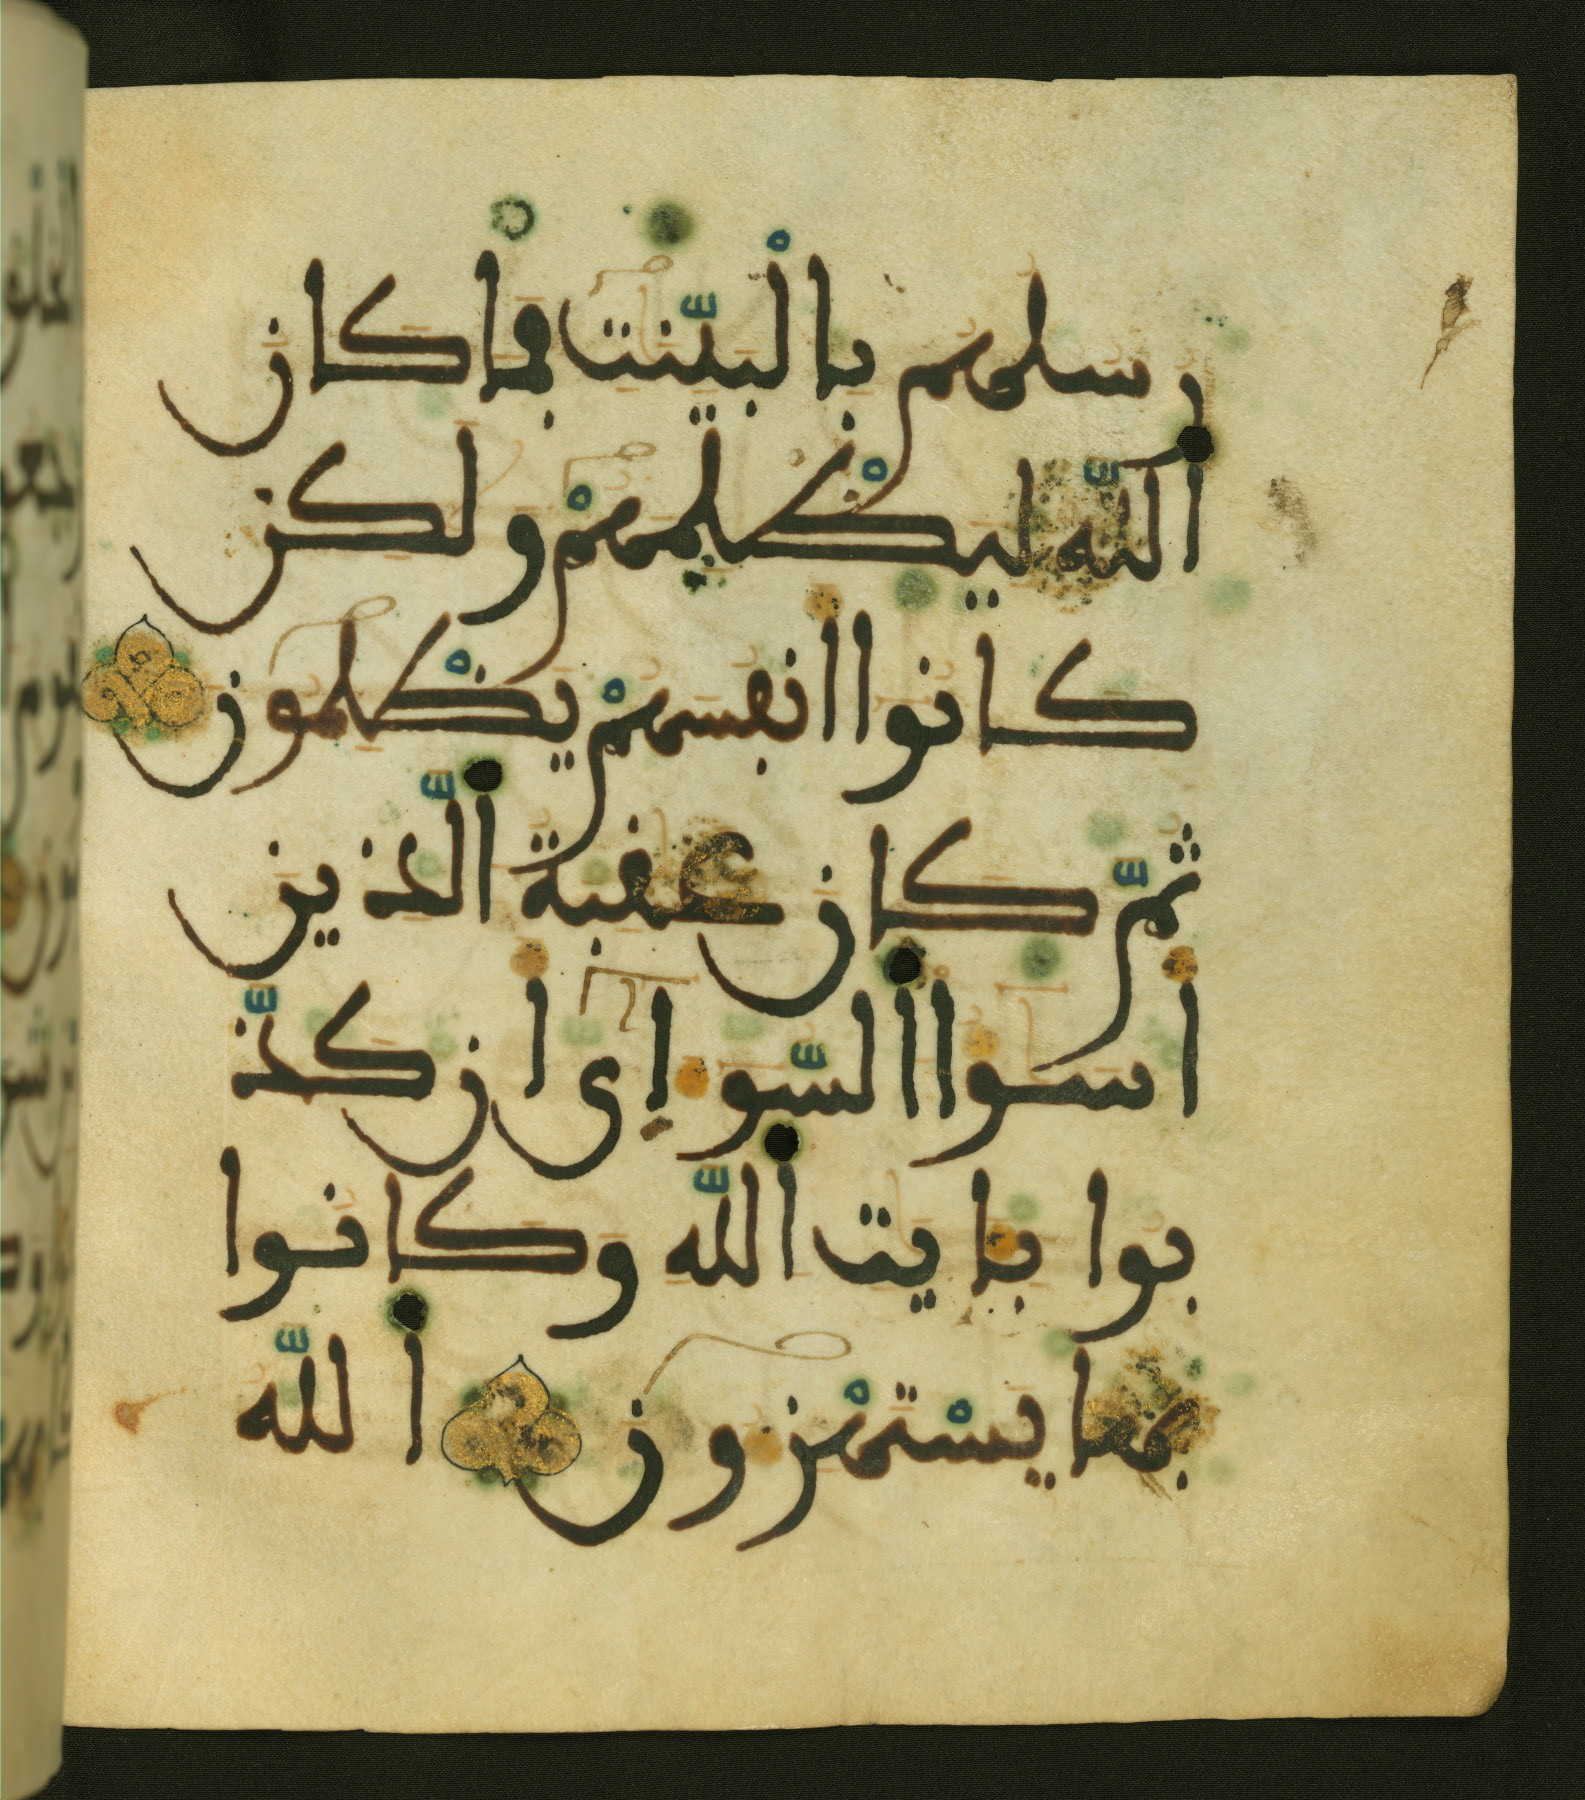 رسلهم بالبينت فما كان
الله ليظلمهم ولكن
كانوا انفسهم يظلمون
ثم كان عقبة الذين
اسوا السواى ان كذ
بوا بايت الله وكانوا
بها يستهزون الله